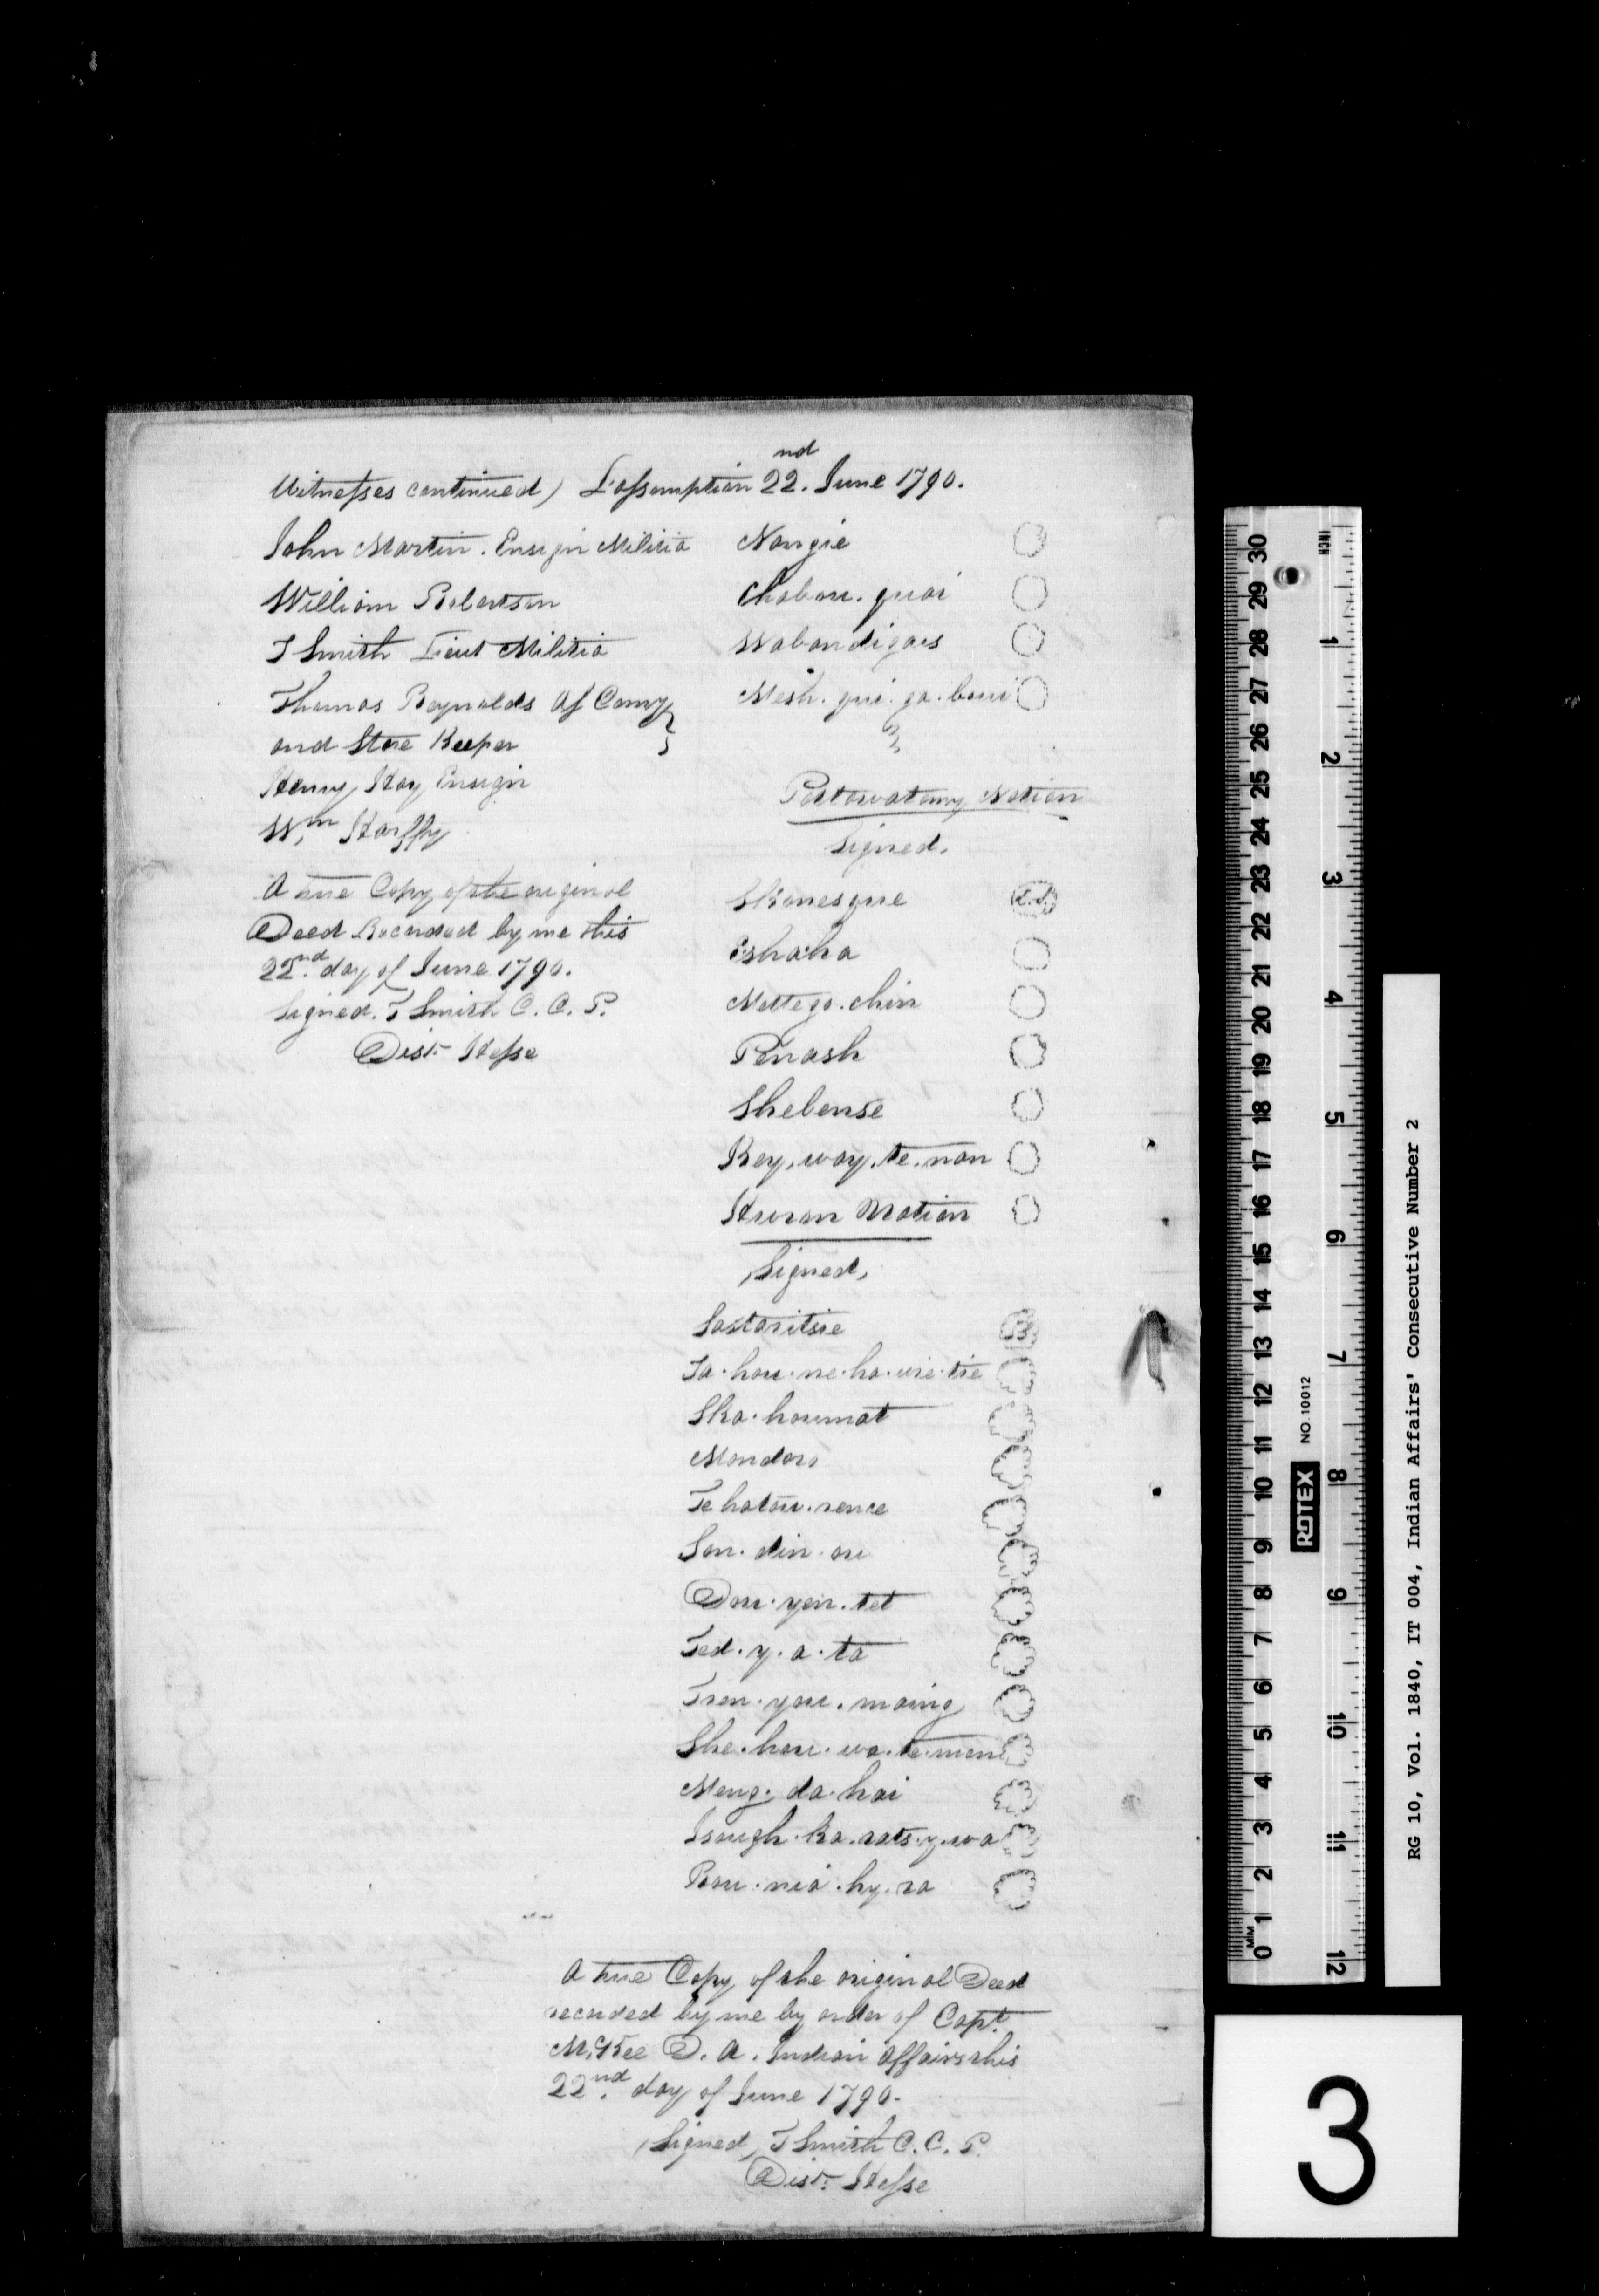 Witnesses continued) L'assumption 22nd. June 1790.
John Martin. Ensign Militia
William Robertson
T Smith Lieut Militia
Thomas Reynolds As Comy
and Store Keeper
Henry Hay Ensign
Wm Harffy
A true Copy of the original
Deed Recorded by me this
22nd. day of June 1790.
Signed. T Smith C. C. P.
Dist. Hesse
Nangie
Chabou. quai
Wabandigais
Mesh. qui. ga. boui
Pottowatamy Nation
Signed.
Skanesque
L.S.
Eshaha
Mettego. chin
Penash
Shebense
Key. way. te. nan
Huron Nation
Signed,
Sastaritsie
Ta. hou. ne. ha. wie. tie
Ska. houmat
Mondoro
Te hatou. rence
Son. din. ou
Dou. yen. tet
Ted. y. a. ta
Tren. you. maing
She. hou. wa. te. mon
Meng. da. hai
Tsough. ka. rats. y. wa
Rou. nia. hy. ra
A true Copy of the original Deed
recorded by me by order of Capt.
McKee D. A. Indian Affairs this
22nd. day of June 1790.
Signed, T Smith C. C. P.
Dist. Hesse
INCH
MM
NO. 10012
ROTEX
0 1 2 3 4 5 6 7 8 9 10 11 12 13 14 15 16 17 18 19 20 21 22 23 24 25 26 27 28 29 30
1 2 3 4 5 6 7 8 9 10 11 12
RG 10, Vol. 1840, IT 004, Indian Affairs' Consecutive Number 2
3